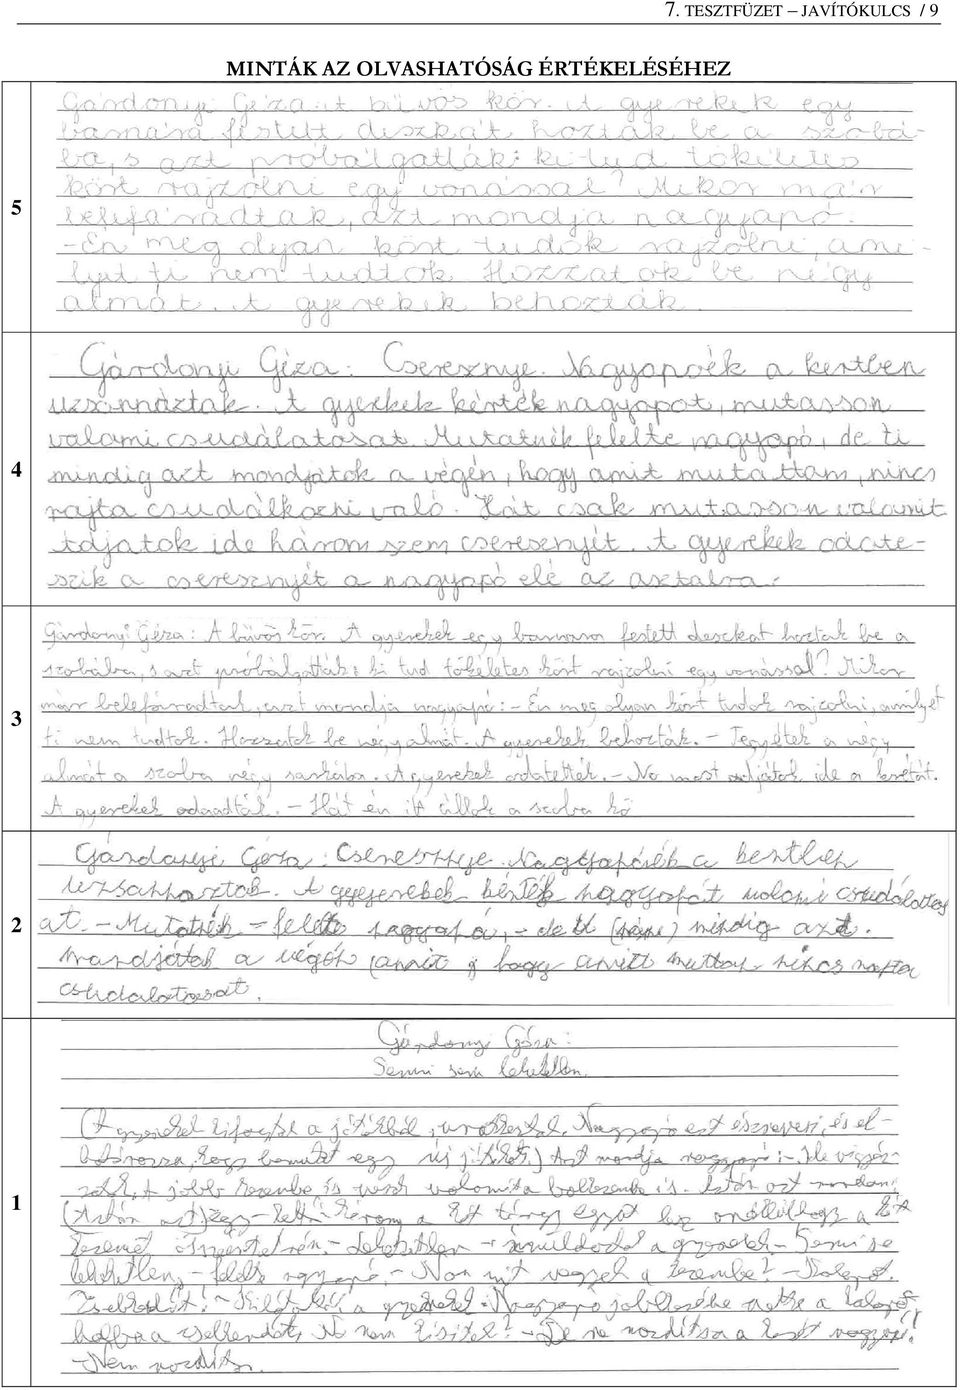 7. TESZTFÜZET – JAVÍTÓKULCS / 9
MINTÁK AZ OLVASHATÓSÁG ÉRTÉKELÉSÉHEZ
5
Gárdonyi Géza: A bűvös kör. A gyerekek egy
barnára festett deszkát hoztak be a szobá-
ba, s azt próbálgatták: ki tud tökéletes
kört rajzolni egy vonással? Mikor már
belefáradtak, azt mondja nagyapó:
-Én meg olyan kört tudok rajzolni, ami-
lyet ti nem tudtok. Hozzatok be négy
almát. A gyerekek behozták.
4
Gárdonyi Géza: Cseresznye. Nagyapóék a kertben
uzsonnáztak. A gyerekek kérték nagyapót, mutasson
valami csudálatosat. Mutatnék felelte nagyapó, de ti
mindig azt mondjátok a végén, hogy amit mutattam, nincs
rajta csudálkozni való. Hát csak mutasson valamit
Adjatok ide három szem cseresznyét. A gyerekek odate-
szik a cseresznyét a nagyapó elé az asztalra.
3
Gárdonyi Géza: A bűvös kör. A gyerekek egy barnára festett deszkát hoztak be a
szobába, s azt próbálgatták: ki tud tökéletes kört rajzolni egy vonással? Mikor
már belefáradtak, azt mondja nagyapó: - Én meg olyan kört tudok rajzolni, amilyet
ti nem tudtok. Hozzatok be négy almát. A gyerekek behozták. - Tegyétek a négy
almát a szoba négy sarkába. A gyerekek odatették. - No most adjátok ide a krétát.
A gyerekek odaadták. - Hát én itt állok a szoba kö
2
Gárdonyi Géza: Cseresznye. Nagyapóék a kertben
uzsonnáztak. A gyerekek kérték nagyapót valami csudálatos
at. - Mutatnék - felelte nagyapó, - de ti mindig azt
mondjátok a végén hogy amit nincs rajta
csudálatosat.
1
Gárdonyi Géza:
Semmi sem lehetetlen.
A gyerekek kifogytak a játékból, Nagyapó ezt észreveszi, és el-
hogy bemutat egy új játékot.) Azt mondja nagyapó: - Ide vigyáz-
zatok. A jobb kezembe is veszek valamit a balkezembe is. Aztán azt mondom
egy - kettő - három a két tárgy együtt lesz anélkül hogy a két
kezemet - Lehetetlen - a gyerekek - Semmi se
lehetetlen, - felelte nagyapó, - Na mit vegyek a kezembe? - Kalapot.
Zsebkendőt! a gyerekek. Nagyapó jobbkezébe vette a kalapot
balba a zsebkendőt. - De ne mozdítsa a kezét nagyapó!
- Nem mozdítom.